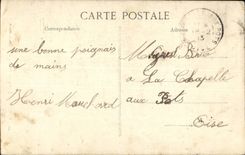 CARTE POSTALE
Correspondance
Adresse
une bonne poignée
de mains
Henri
à La Chapelle
aux Pots
Oise